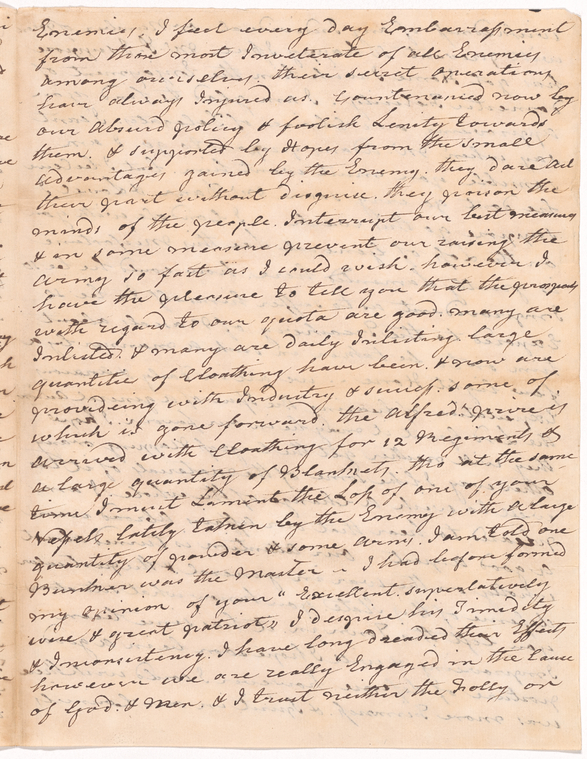 Enemies, I feel every day Embarrassment
from those most Inveterate of all Enemies
among ourselves, their secret operations
have always Injured us. Countenanced now by
our Absurd policy & foolish Lenity towards
them. & supported by Hopes from the small
advantages gained by the Enemy they dare act
their part without disguise. they poison the
minds of the people. Interrupt our best measures
& in some measure prevent our raising the
army so fast as I could wish. however I
have the pleasure to tell you that the prospects
with regard to our quota are good. many are
Inlisted. & many are daily Inlisting. large
quantities of Cloathing have been. & now are
provideing with Industry & success. some of
which is gone forward. the Alfred's prize is
arrived with Cloathing for 12 Regiments &
a large quantity of Blankets. tho at the same
time I must Lament the Loss of one of your
vessels lately taken by the Enemy with a large
quantity of powder & some arms. I am told one
was the Master – I had before formed
my opinion of your "Excellent. superlatively
wise & great patriot" I despise his Timidity
& Inconsistency. I have long dreaded their Effects
however we are really Engaged in the Cause
of God. & Man. & I trust neither the Folly or